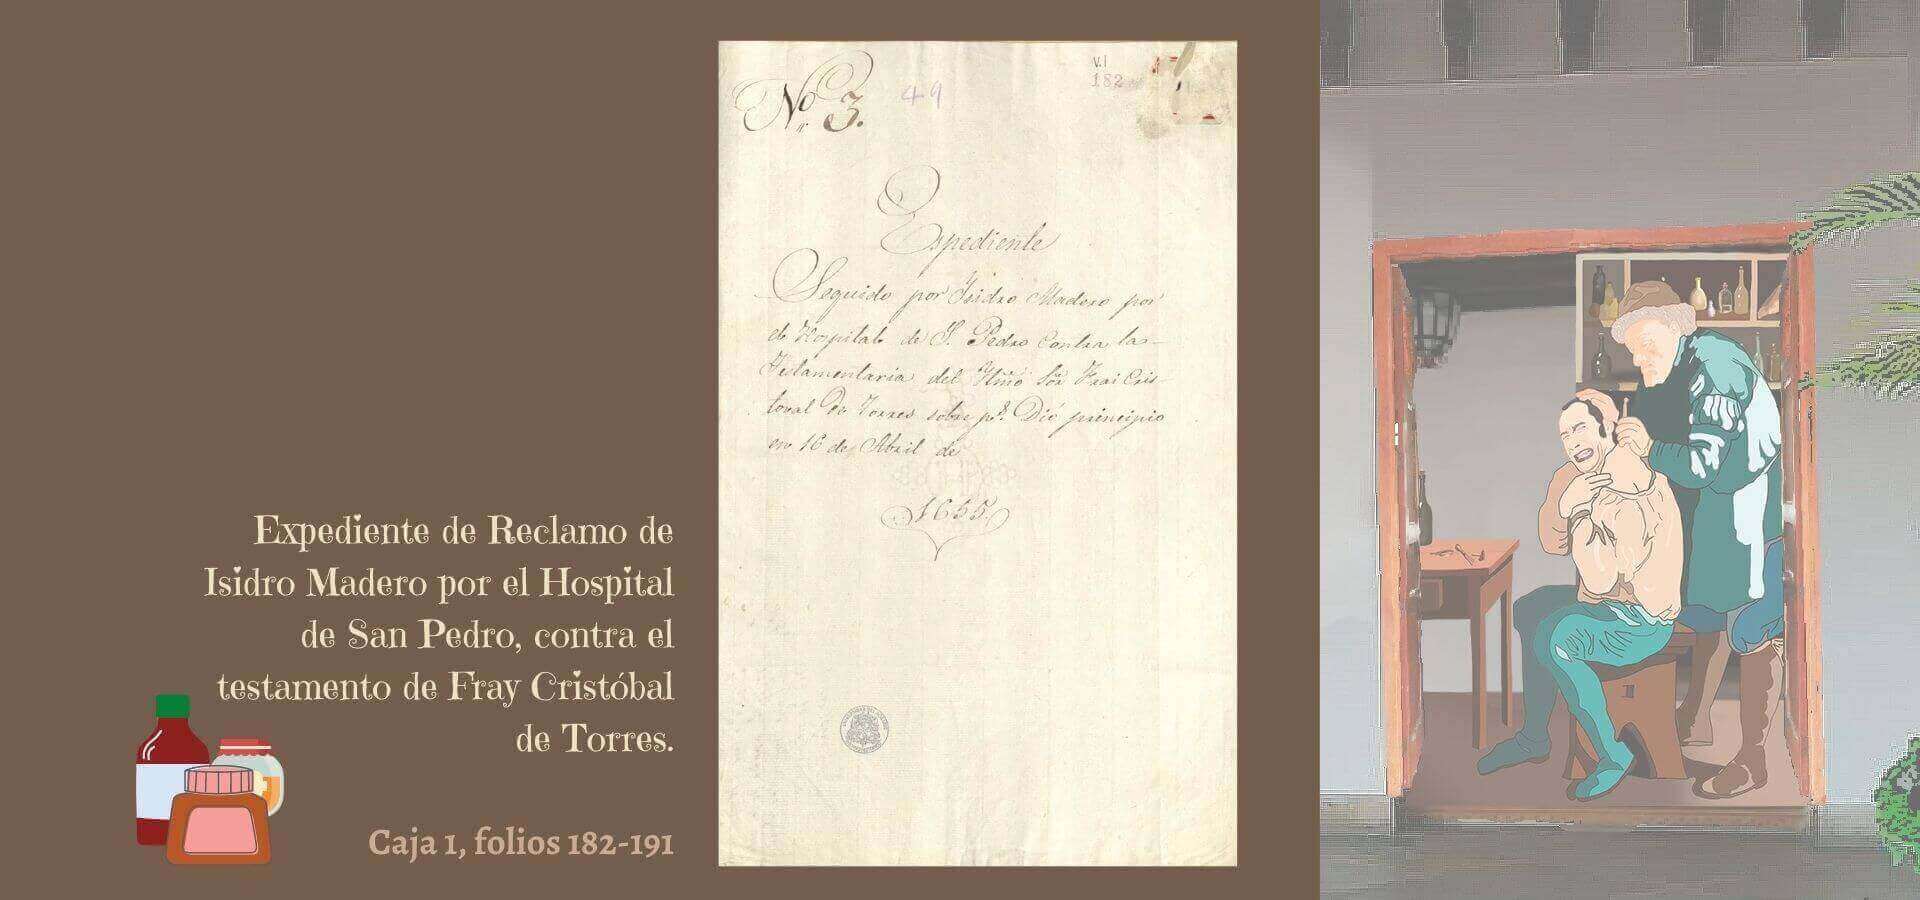 Expediente de Reclamo de
Isidro Madero por el Hospital
de San Pedro, contra el
testamento de Fray Cristóbal
de Torres.
Caja 1, folios 182-191
No. 3.
49
V.I
182
Expediente
Seguido por Isidro Madero por
el Hospital de S. Pedro Contra la
Testamentaria del Yllmo Sor Frai Cris-
toval de Torres sobre ps. Dió principio
en 16 de Abril de
1655